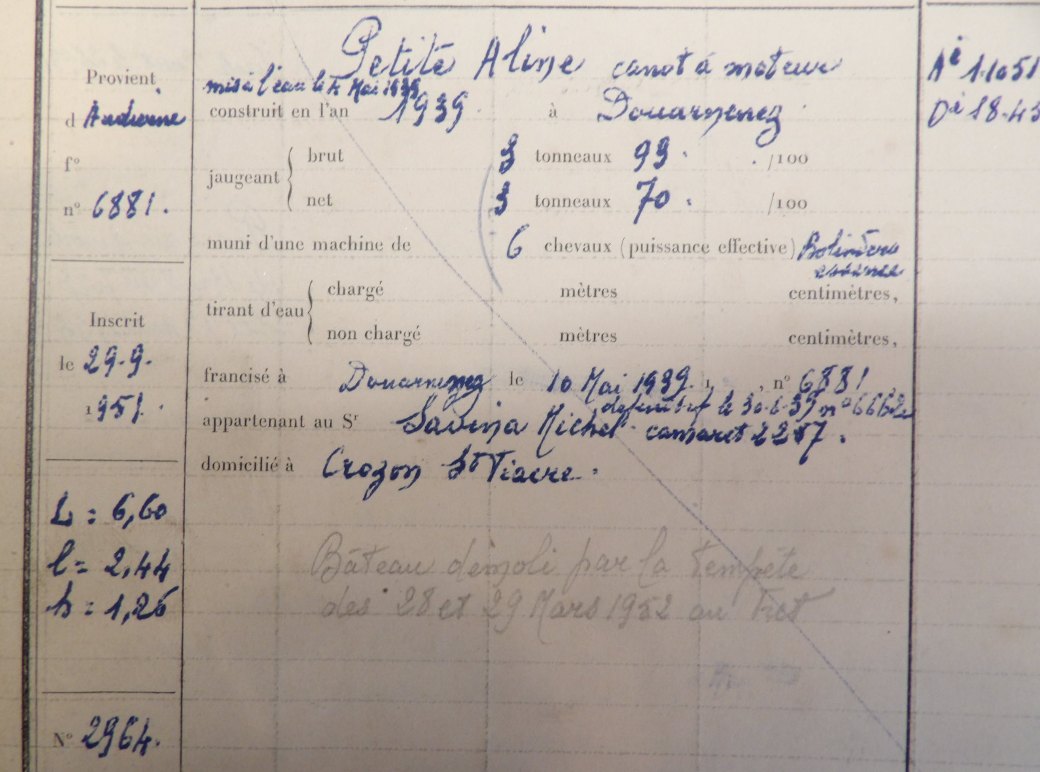 Provient
d Audierne
f°
n° 6881.
Inscrit
le 29.9.
1951.
L = 6,60
l = 2,44
h = 1,26
N° 2964.
Petite Aline canot à moteur
mis à l'eau le Mai 1939
construit en l'an 1939 à Douarnenez
jaugeant brut 3 tonneaux 93 /100
net 3 tonneaux 70 /100
muni d'une machine de 6 chevaux (puissance effective) Bolinders
essence
tirant d'eau chargé mètres centimètres,
non chargé mètres centimètres,
francisé à Douarnenez le 10 Mai 1939, n° 6881
définitif le 30.6.39 n° 6662
appartenant au Sr Savina Michel camaret 2257.
domicilié à Crozon St Fiacre.
Bâteau démoli par la tempête
des 28 et 29 Mars 1952 au Fret
Aé 1.10 51
Dé 18.43